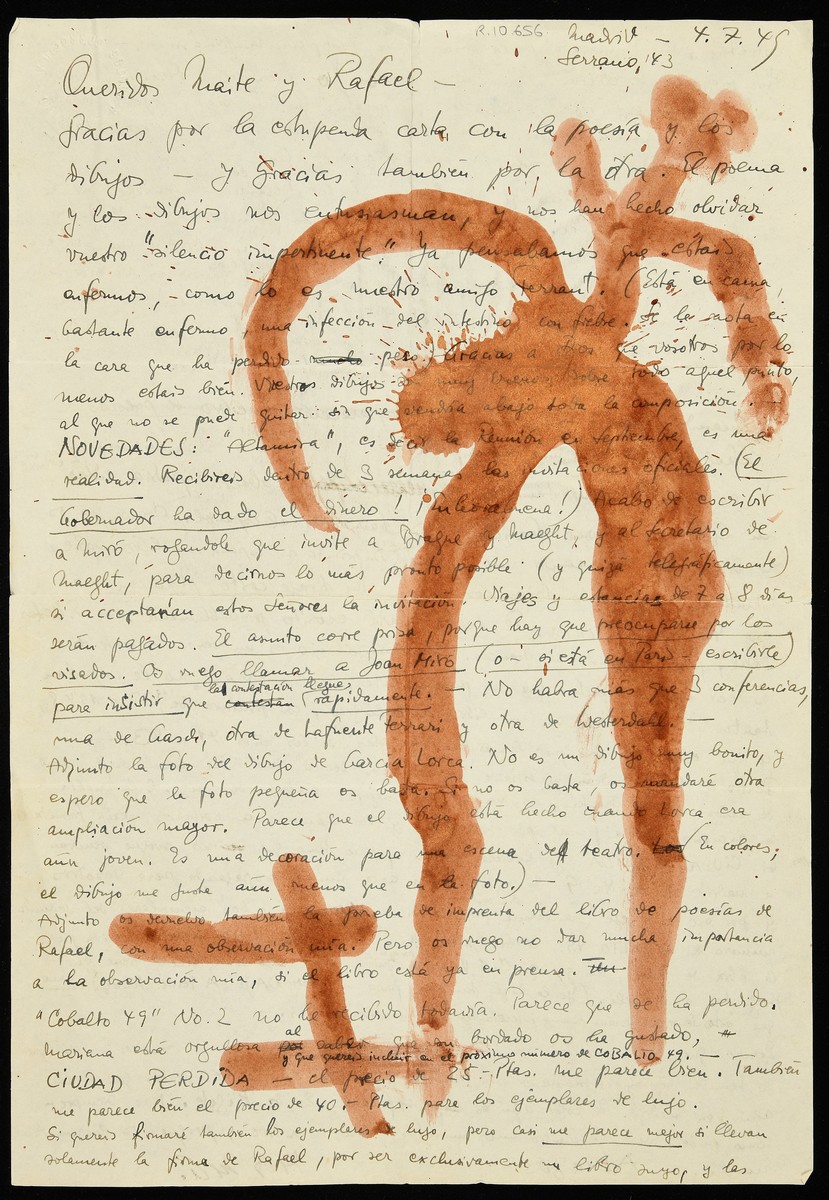 R.10.656
Madrid – 4.7.49
Serrano, 143
Queridos Maite y Rafael –
Gracias por la estupenda carta con la poesía y los
dibujos – y gracias también por la otra. El poema
y los dibujos nos entusiasman, y nos han hecho olvidar
vuestro "silencio impertinente." Ya pensabamos que estais
enfermos, como lo es nuestro amigo Ferrant. (Está en cama,
bastante enfermo, una infección del intestino, con fiebre. Se le nota en
la cara que ha perdido mucho peso. Gracias a Dios que vosotros por lo
menos estais bien. Vuestros dibujos son muy buenos, sobre todo aquel punto,
al que no se puede quitar sin que vendría abajo toda la composición. –
NOVEDADES: "Altamira", es decir la Reunión en Septiembre, es una
realidad. Recibireis dentro de 3 semanas las invitaciones oficiales. (El
Gobernador ha dado el dinero! ¡Enhorabuena!) Acabo de escribir
a Miró, rogandole que invite a Braque y Maeght, y al Secretario de
Maeght, para decirnos lo más pronto posible (y quizá telegráficamente)
si acceptarian estos Señores la invitación. Viajes y estancias de 7 a 8 días
serán pagados. El asunto corre prisa, porque hay que preocuparse por los
visados. Os ruego llamar a Joan Miró (o – si está en París – escribirle)
para insistir que la contestación llegue rápidamente. – No habrá más que 3 conferencias,
una de Gasch, otra de Lafuente Ferrari y otra de Westerdahl. –
Adjunto la foto del dibujo de Garcia Lorca. No es un dibujo muy bonito, y
espero que la foto pequeña os basta. Si no os basta, os mandaré otra
ampliación mayor. Parece que el dibujo está hecho cuando Lorca era
aún joven. Es una decoración para una escena del teatro. (En colores,
el dibujo me gusta aún menos que en la foto.) –
Adjunto os devuelvo también la prueba de imprenta del libro de poesías de
Rafael, con una observación mía. Pero os ruego no dar mucha importancia
a la observación mía, si el libro está ya en prensa.
"Cobalto 49" No. 2 no he recibido todavía. Parece que se ha perdido.
Mariana está orgullosa al saber que su bordado os ha gustado,
y que quereis incluir en el próximo número de COBALTO 49. –
CIUDAD PERDIDA – el precio de 25.– Ptas. me parece bien. También
me parece bien el precio de 40.– Ptas. para los ejemplares de lujo.
Si quereis firmaré también los ejemplares de lujo, pero casi me parece mejor si llevan
solamente la firma de Rafael, por ser exclusivamente un libro suyo, y las